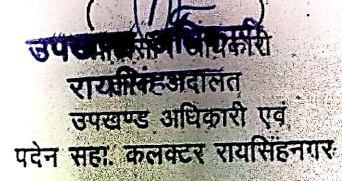 उपखण्ड अधिकारी
अदालत
उपखण्ड अधिकारी एवं
पदेन सहा. कलक्टर रायसिंहनगर